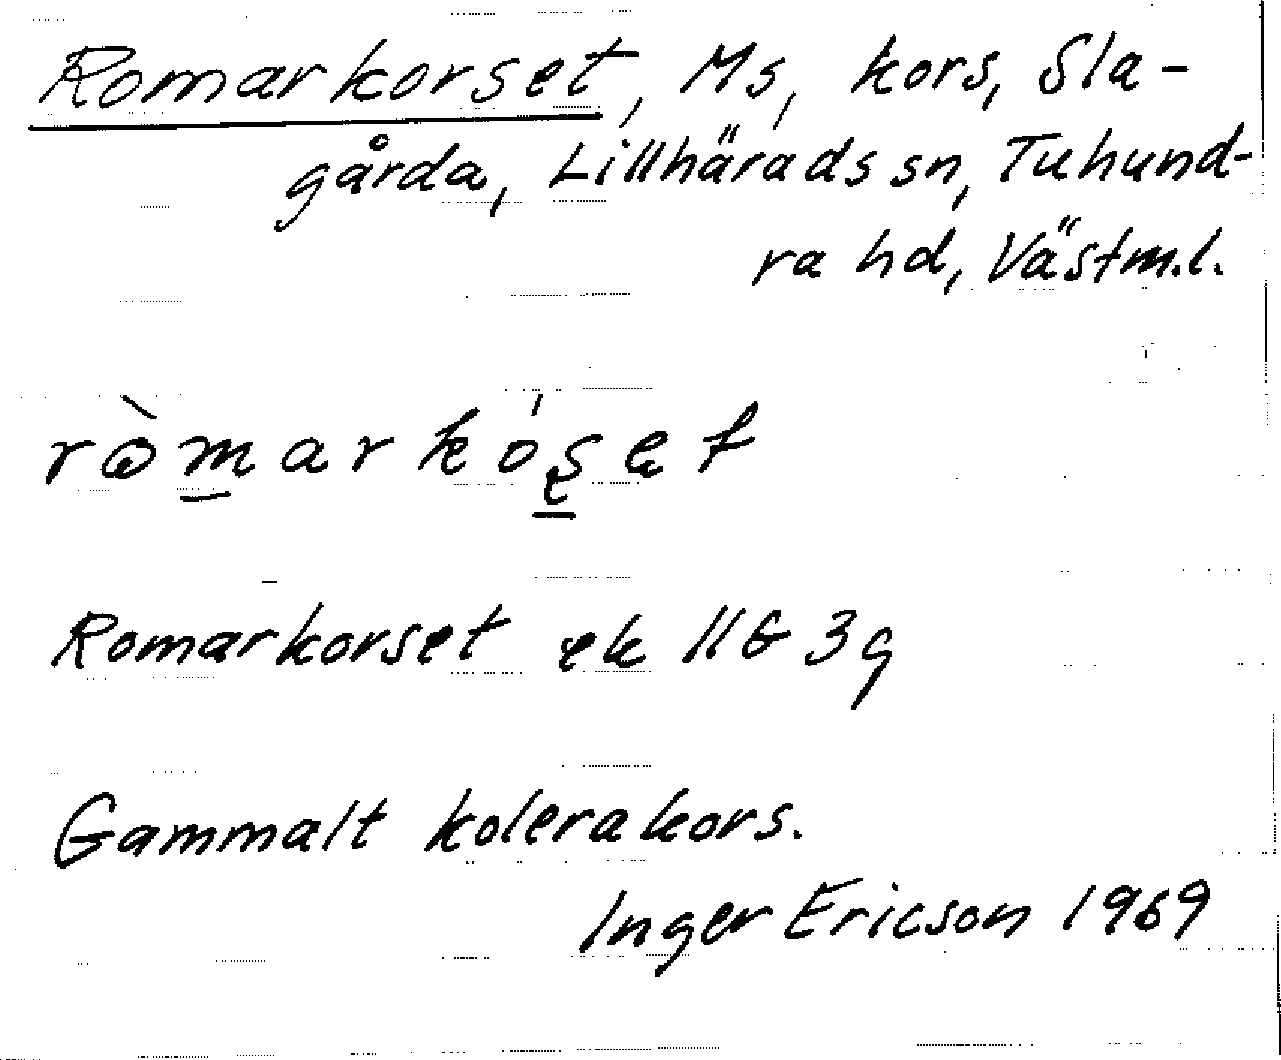 Romarkorset, Ms, kors, Sla-
gårda, Lillhärads sn, Tuhund-
ra hd, Västm.l.
Romarkorset ek 11G 3g
Gammalt kolerakors.
Inger Ericson 1969